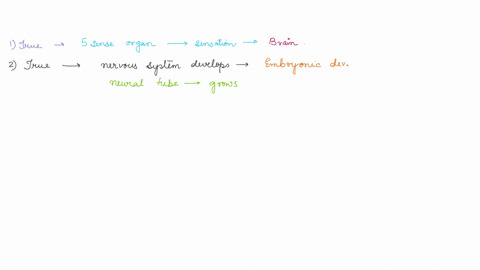 1) True → 5 sense organ → sensation → Brain.
2) True → nervous system develops → Embryonic dev.
neural tube → grows